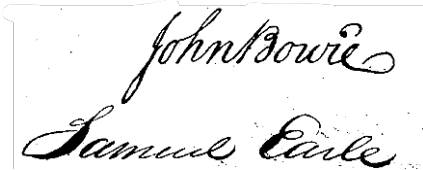 John Bowie
Samuel Earle